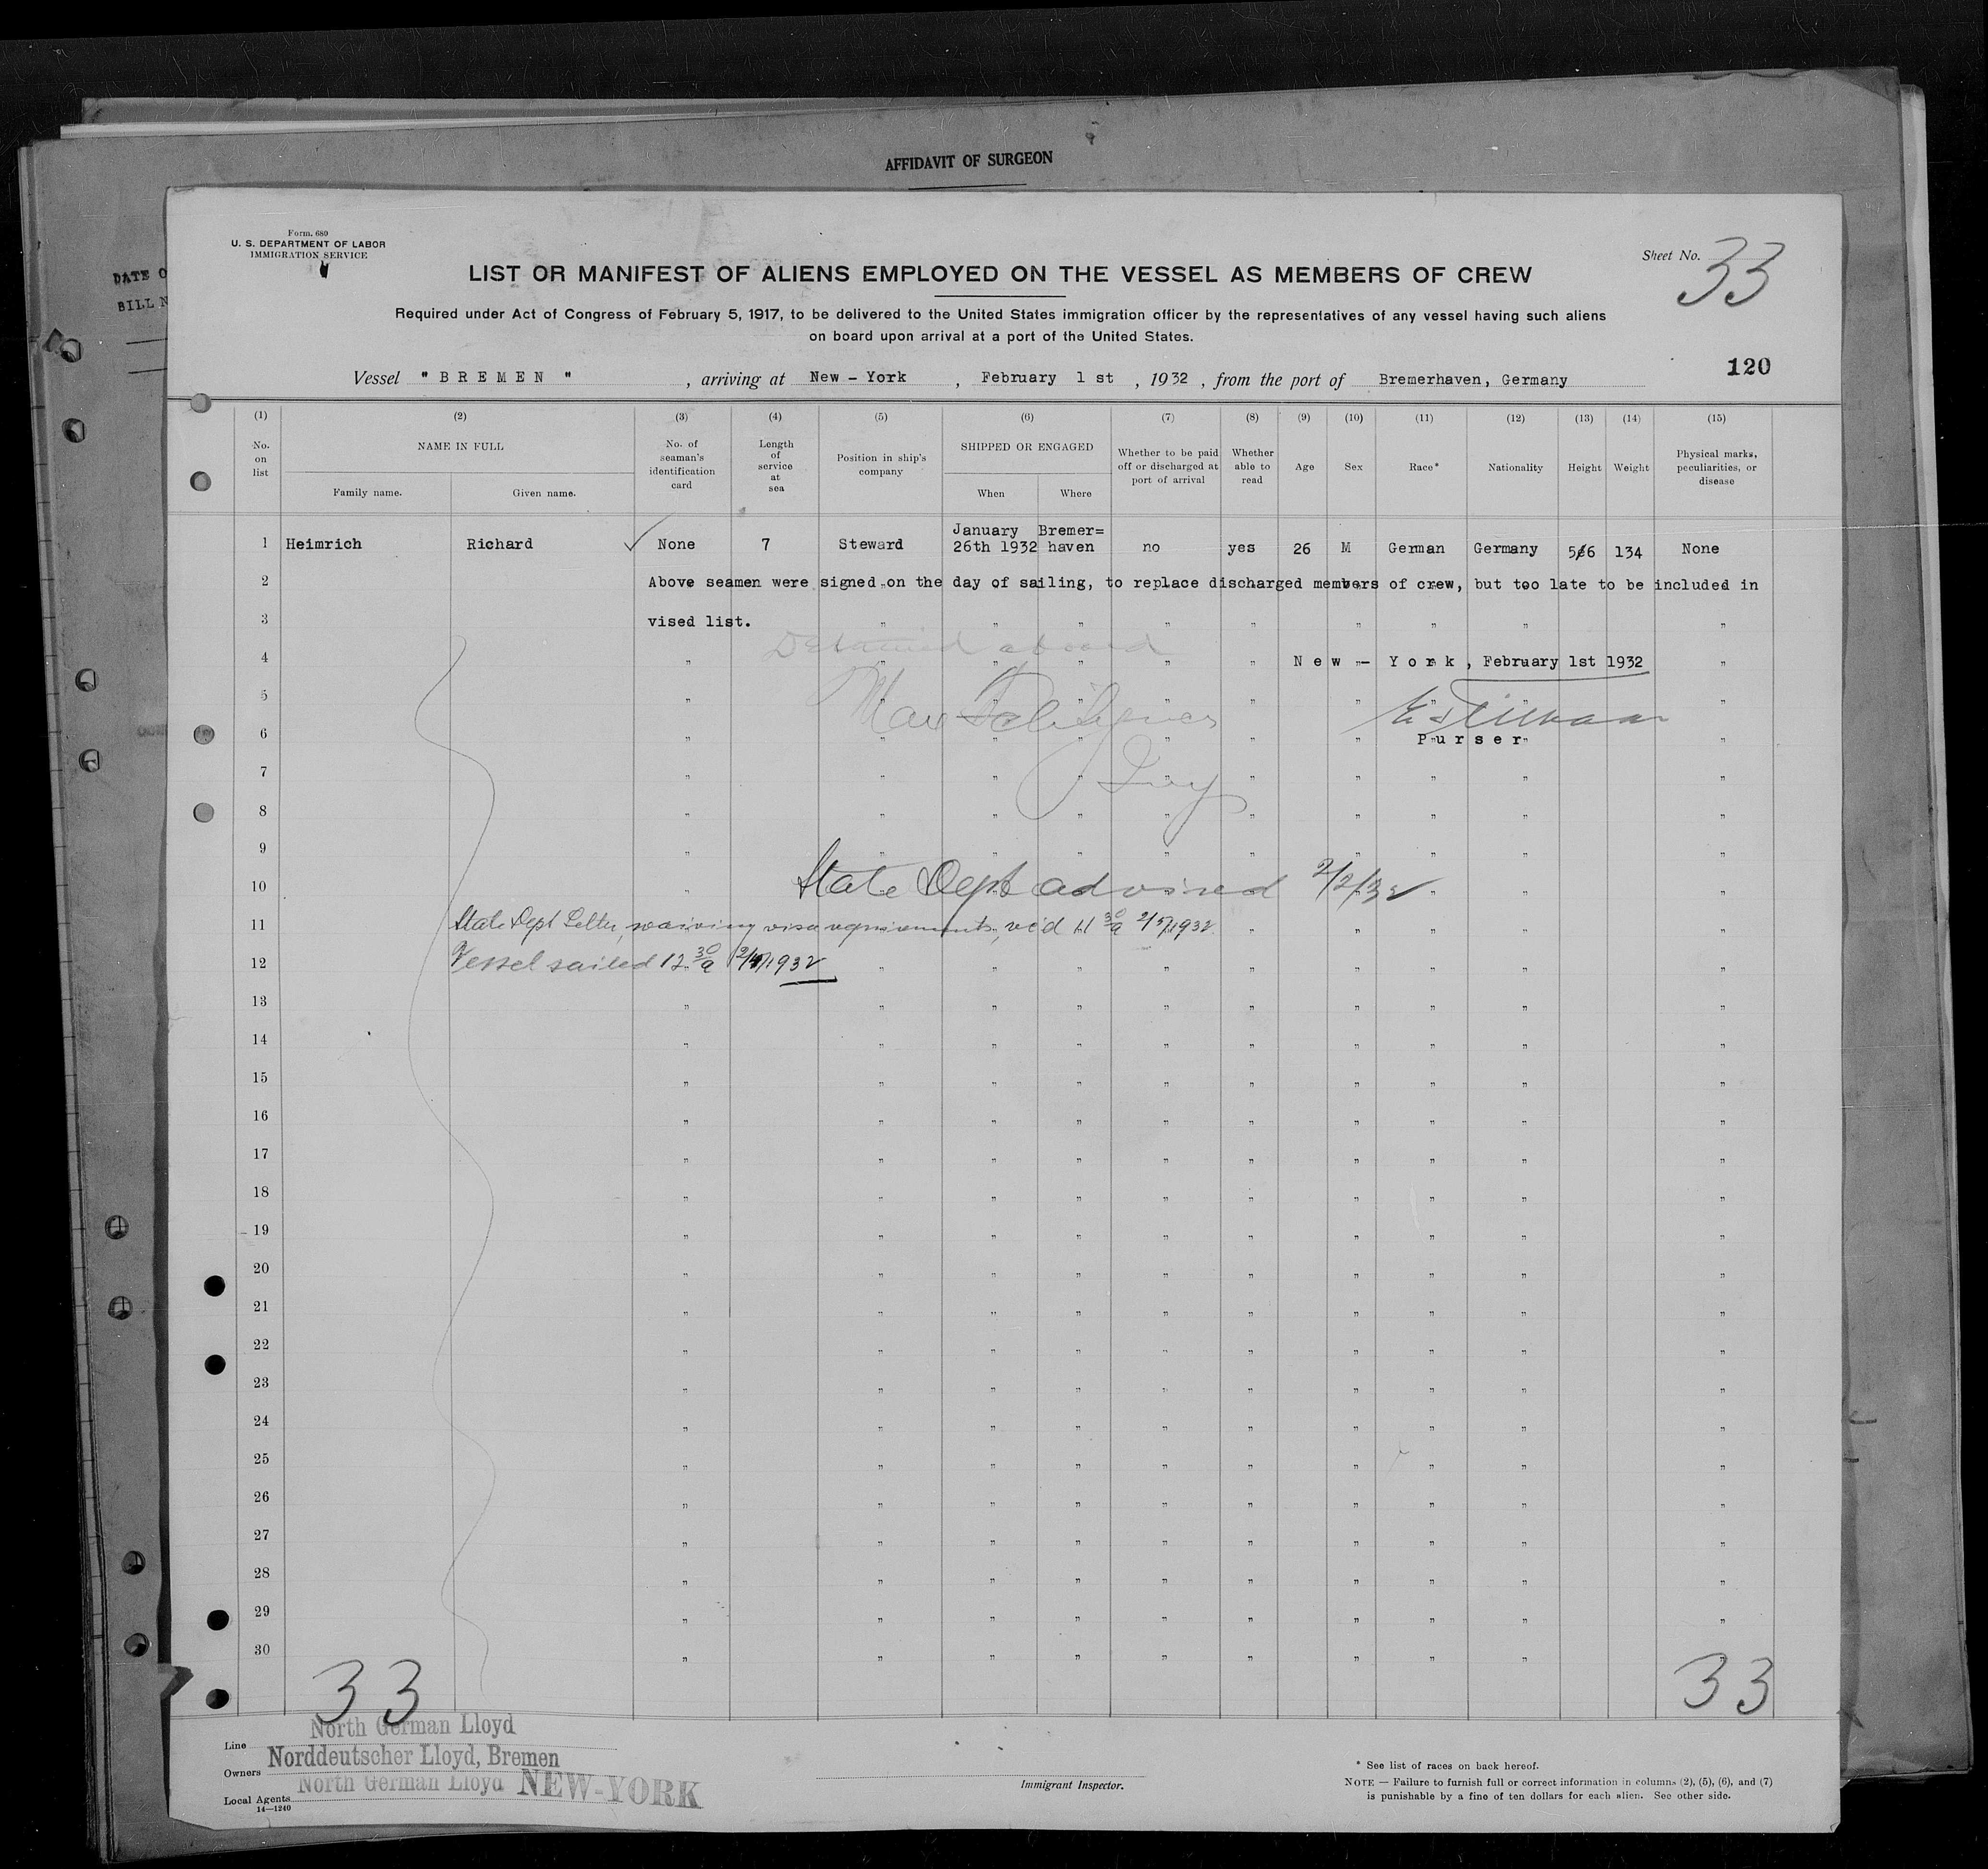 AFFIDAVIT OF SURGEON
DATE O
BILL N
Form. 689
U. S. DEPARTMENT OF LABOR
IMMIGRATION SERVICE
Sheet No. 33
LIST OR MANIFEST OF ALIENS EMPLOYED ON THE VESSEL AS MEMBERS OF CREW
Required under Act of Congress of February 5, 1917, to be delivered to the United States immigration officer by the representatives of any vessel having such aliens
on board upon arrival at a port of the United States.
120
Vessel "BREMEN", arriving at New-York, February 1st, 1932, from the port of Bremerhaven, Germany
(1) (2) (3) (4) (5) (6) (7) (8) (9) (10) (11) (12) (13) (14) (15)
No. on list
NAME IN FULL
Family name. Given name.
No. of seaman's identification card
Length of service at sea
Position in ship's company
SHIPPED OR ENGAGED
When Where
Whether to be paid off or discharged at port of arrival
Whether able to read
Age
Sex
Race*
Nationality
Height
Weight
Physical marks, peculiarities, or disease
1 Heimrich Richard None 7 Steward January 26th 1932 Bremer=haven no yes 26 M German Germany 5/6 134 None
2 Above seamen were signed on the day of sailing, to replace discharged members of crew, but too late to be included in
3 vised list.
Detained aboard
4 New - York, February 1st 1932
5
6 Purser
7
8
9
10 State Dept advised 2/2/32
11 State Dept Letter, waiving visa requirements, rec'd 11 30 a 2/5/1932
12 Vessel sailed 12 30 a 2/4/1932
13
14
15
16
17
18
19
20
21
22
23
24
25
26
27
28
29
30
33 33
Line North German Lloyd
Owners Norddeutscher Lloyd, Bremen
Local Agents North German Lloyd NEW-YORK
14—1240
Immigrant Inspector.
* See list of races on back hereof.
NOTE — Failure to furnish full or correct information in columns (2), (5), (6), and (7)
is punishable by a fine of ten dollars for each alien. See other side.